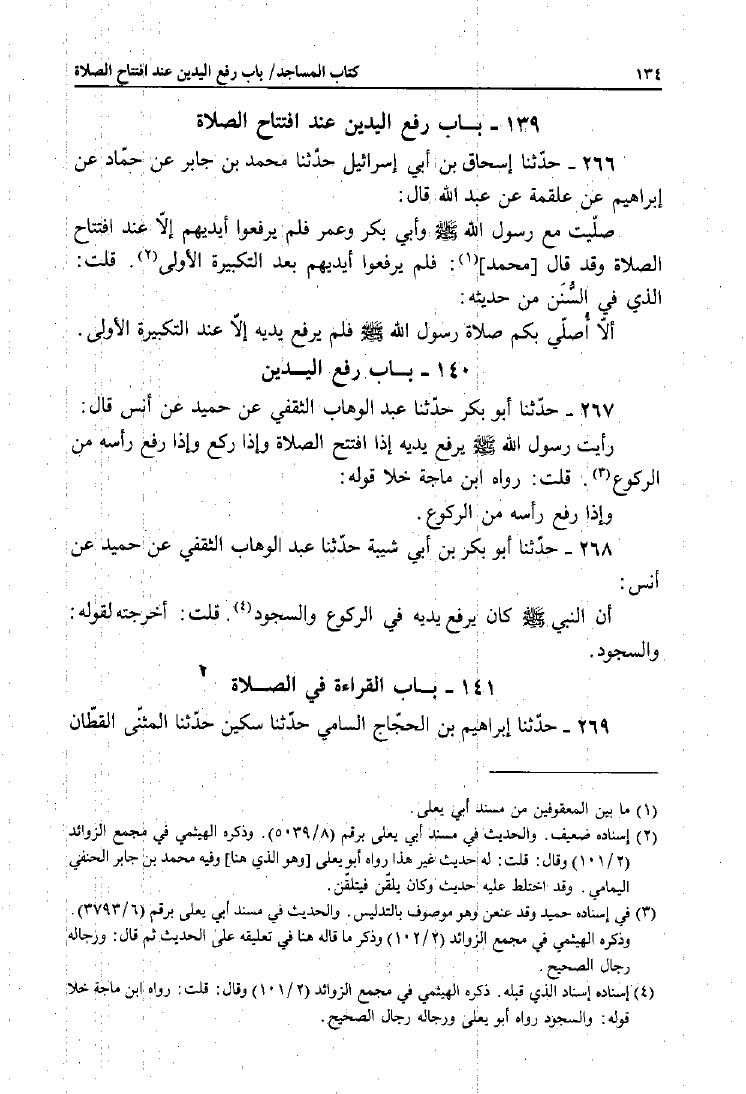 ١٣٤ كتاب المساجد/ باب رفع اليدين عند افتتاح الصلاة
١٣٩ ـ بـاب رفع اليدين عند افتتاح الصلاة
٢٦٦ ـ حدّثنا إسحاق بن أبي إسرائيل حدّثنا محمد بن جابر عن حمّاد عن
إبراهيم عن علقمة عن عبد الله قال:
صلّيت مع رسول الله ﷺ وأبي بكر وعمر فلم يرفعوا أيديهم إلاّ عند افتتاح
الصلاة وقد قال [محمد](١): فلم يرفعوا أيديهم بعد التكبيرة الأولى(٢). قلت:
الذي في السُّنَن من حديثه:
ألاّ أُصلّي بكم صلاة رسول الله ﷺ فلم يرفع يديه إلاّ عند التكبيرة الأولى.
١٤٠ ـ بـاب رفع اليـدين
٢٦٧ ـ حدّثنا أبو بكر حدّثنا عبد الوهاب الثقفي عن حميد عن أنس قال:
رأيت رسول الله ﷺ يرفع يديه إذا افتتح الصلاة وإذا ركع وإذا رفع رأسه من
الركوع(٣). قلت: رواه ابن ماجة خلا قوله:
وإذا رفع رأسه من الركوع.
٢٦٨ ـ حدّثنا أبو بكر بن أبي شيبة حدّثنا عبد الوهاب الثقفي عن حميد عن
أنس:
أن النبي ﷺ كان يرفع يديه في الركوع والسجود(٤). قلت: أخرجته لقوله:
والسجود.
١٤١ ـ بـاب القراءة في الصـلاة ٢
٢٦٩ ـ حدّثنا إبراهيم بن الحجّاج السامي حدّثنا سكين حدّثنا المثنّى القطّان
(١) ما بين المعقوفين من مسند أبي يعلى.
(٢) إسناده ضعيف. والحديث في مسند أبي يعلى برقم (٥٠٣٩/٨). وذكره الهيثمي في مجمع الزوائد
(١٠١/٢) وقال: قلت: له حديث غير هذا رواه أبو يعلى [وهو الذي هنا] وفيه محمد بن جابر الحنفي
اليمامي. وقد اختلط عليه حديث وكان يلقّن فيتلقّن.
(٣) في إسناده حميد وقد عنعن وهو موصوف بالتدليس. والحديث في مسند أبي يعلى برقم (٣٧٩٣/٦).
وذكره الهيثمي في مجمع الزوائد (١٠٢/٢) وذكر ما قاله هنا في تعليقه على الحديث ثم قال: ورجاله
رجال الصحيح.
(٤) إسناده إسناد الذي قبله. ذكره الهيثمي في مجمع الزوائد (١٠١/٢) وقال: قلت: رواه ابن ماجة خلا
قوله: والسجود رواه أبو يعلى ورجاله رجال الصحيح.